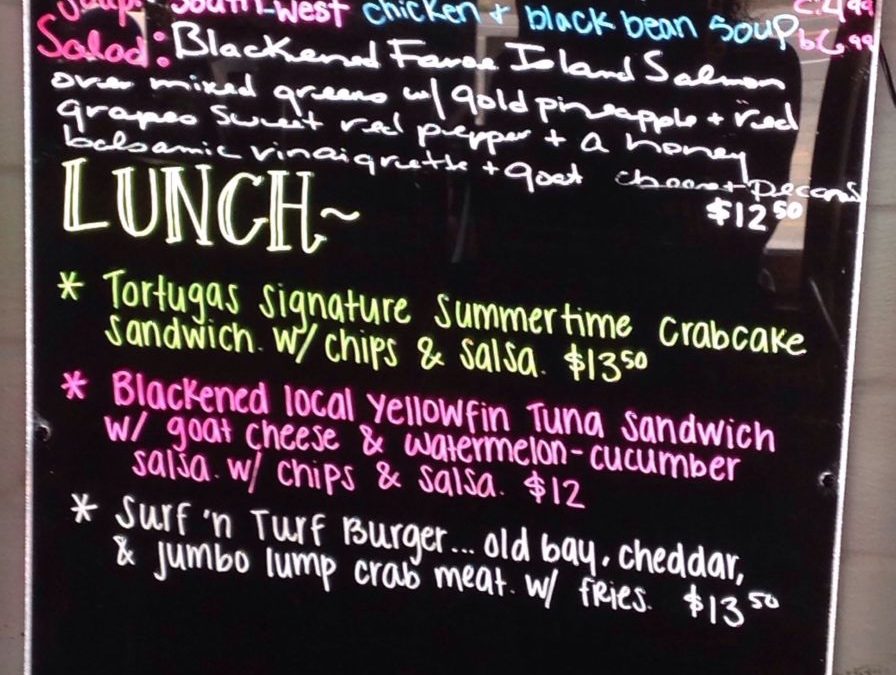 Soup: South-West chicken + black bean soup c.4.99
b6.99
Salad: Blackened Faroe Island Salmon
over mixed greens w/ gold pineapple + red
grapes sweet red pepper + a honey
balsamic vinaigrette + goat cheese + Pecans
$12 50
LUNCH~
* Tortugas signature summertime crabcake
sandwich. w/ chips & salsa. $13 50
* Blackened local yellowfin Tuna sandwich
w/ goat cheese & watermelon-cucumber
salsa. w/ chips & salsa. $12
* Surf 'n Turf Burger... old bay, cheddar,
& jumbo lump crab meat. w/ fries. $13 50